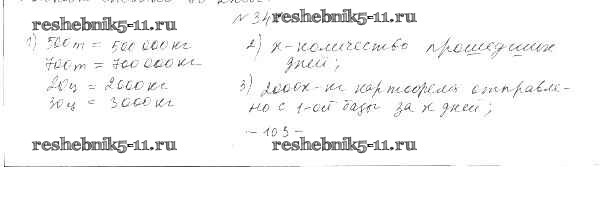 № 34
reshebnik5-11.ru reshebnik5-11.ru
1) 500т = 500 000 кг
700т = 700 000 кг
20ц = 2000 кг
30ц = 3000 кг
2) x - количество прошедших
дней;
3) 2000x - кг картофеля отправле-
но с 1-ой базы за x дней;
- 103 -
reshebnik5-11.ru reshebnik5-11.ru